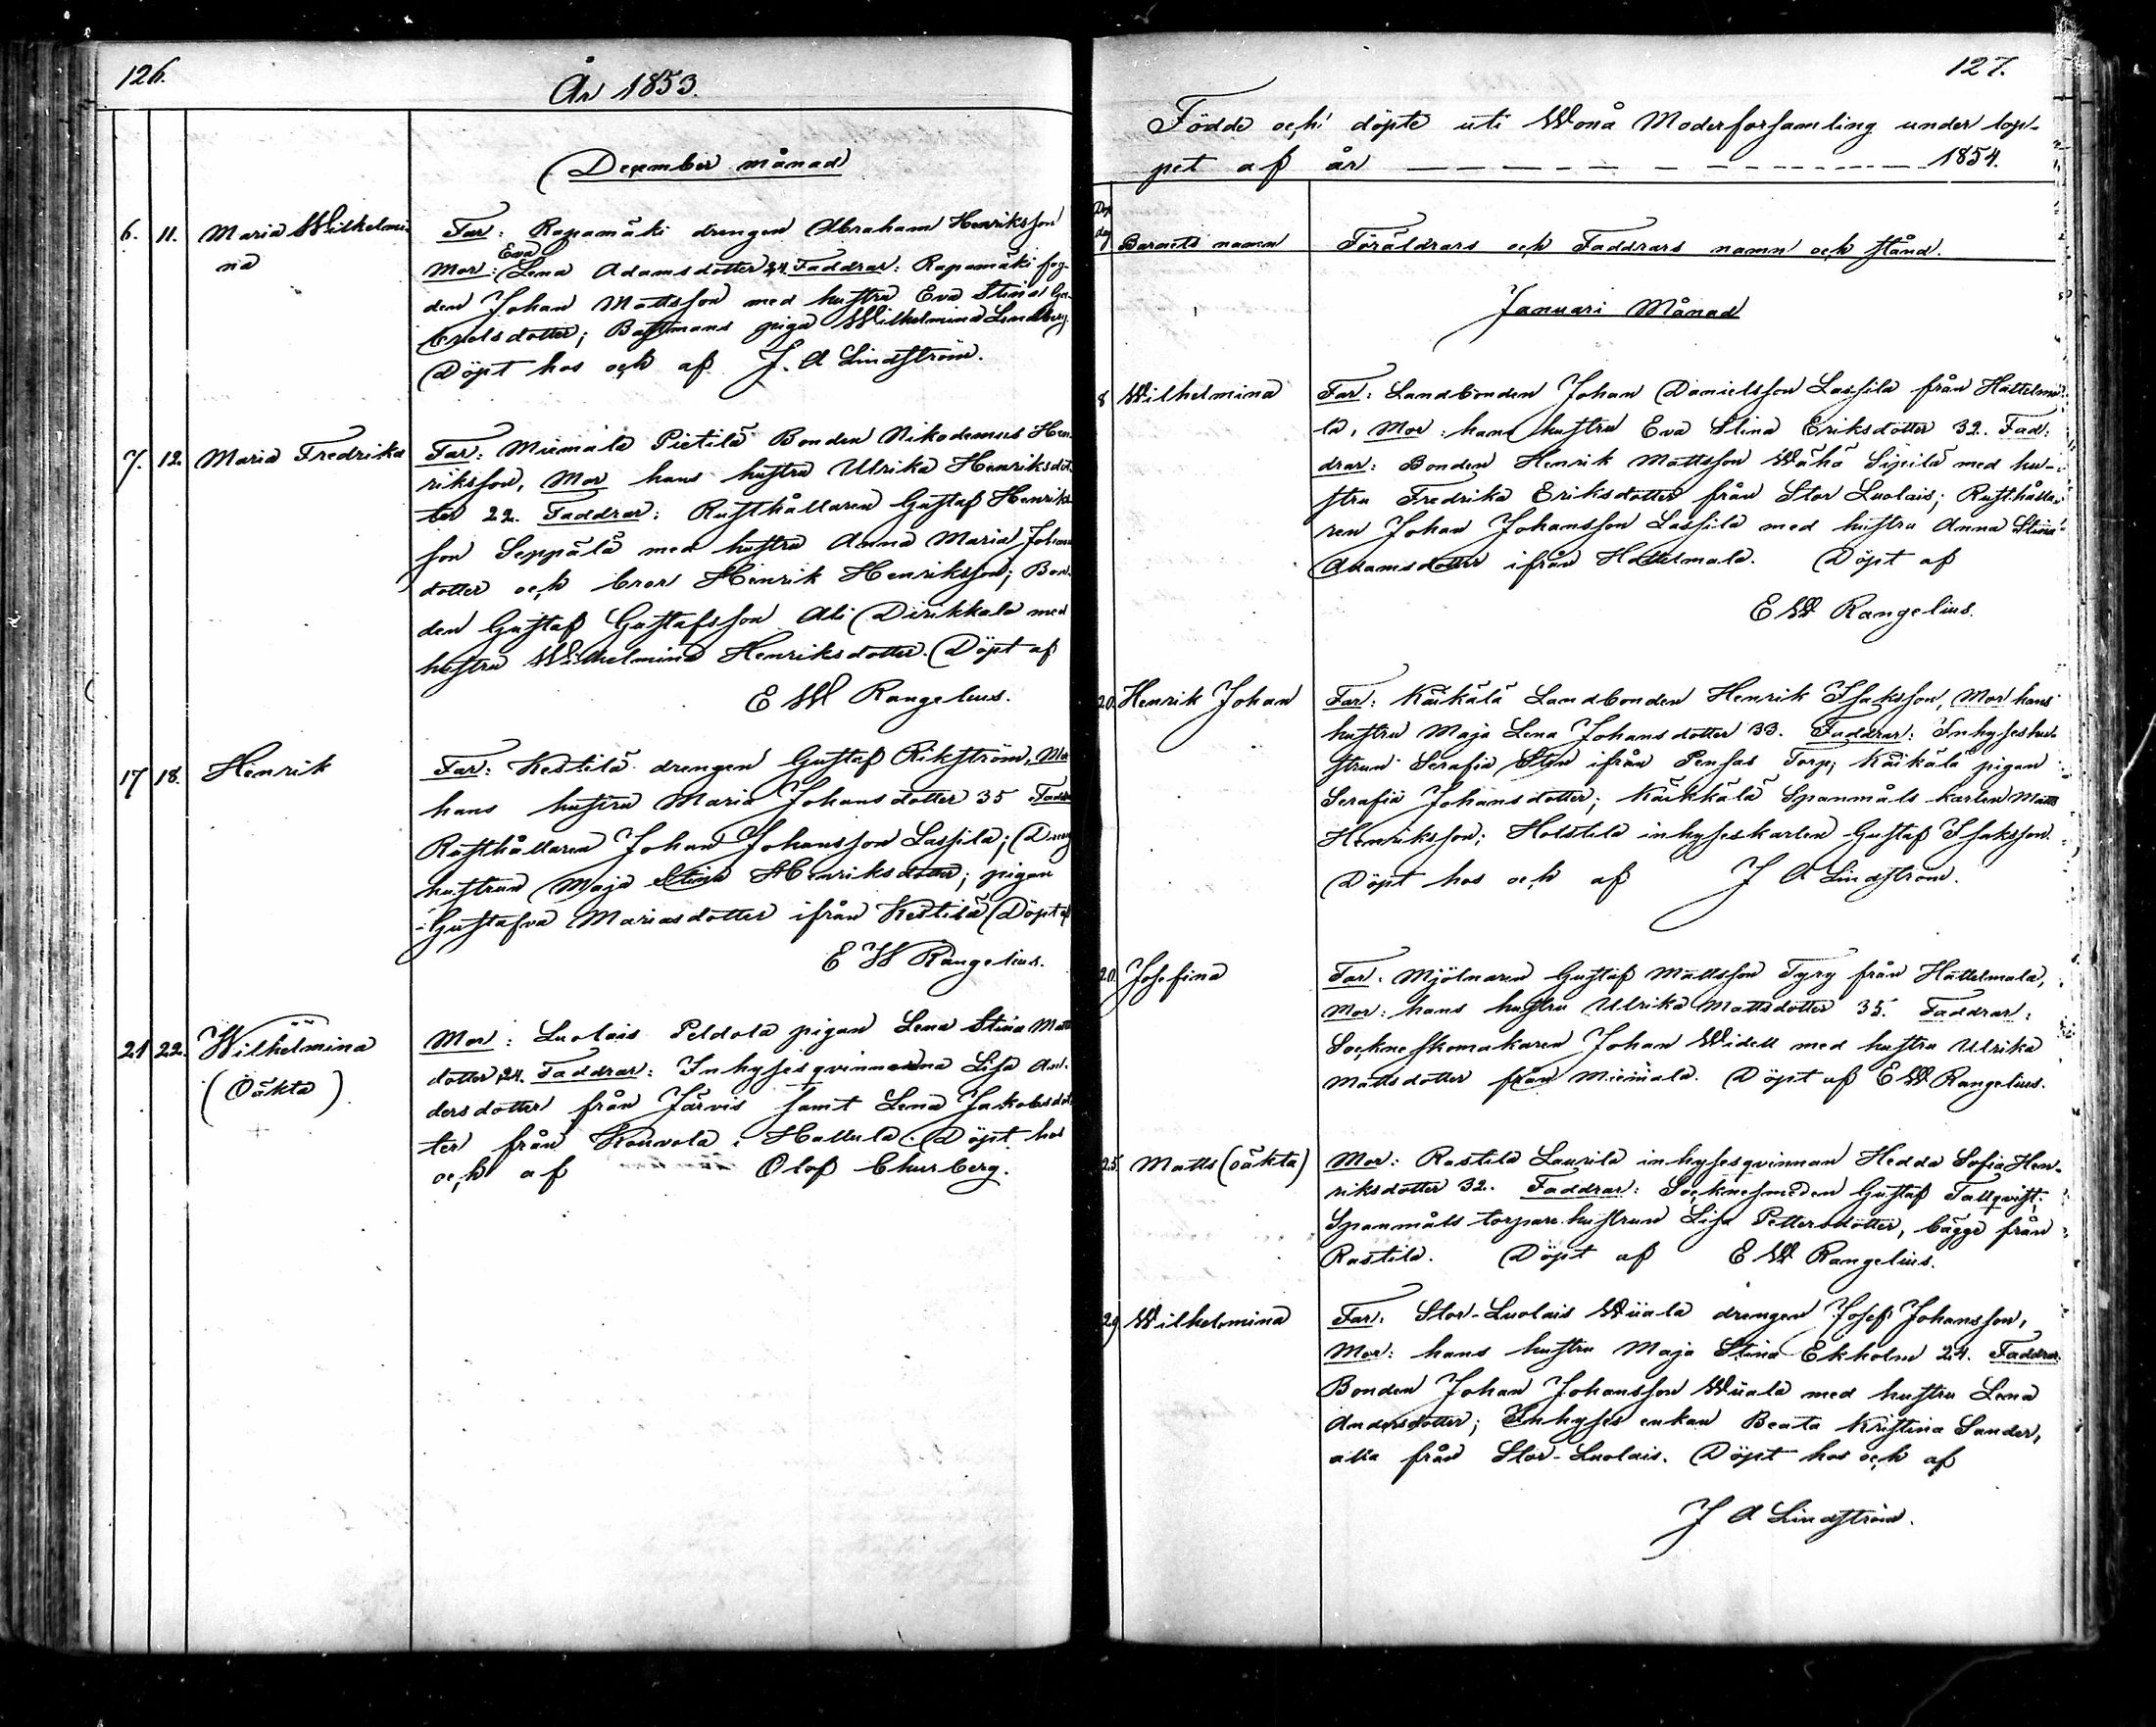 126.
År 1853.
December månad
6. 11. Maria Wilhelmi-
na
Far: Rapamäki drengen Abraham Henriksson
Eva
Mor: Lena Adamsdotter 24. Faddrar: Rapamäki fog-
den Johan Mattsson med hustru Eva Stina Ga-
brielsdotter; Bastmans piga Wilhelmina Lundberg.
Döpt hos och af J. A Lindström.
7. 12. Maria Fredrika
Far: Miemala Pietilä Bonden Nikodemus Hen-
riksson, Mor hans hustru Ulrika Henriksdot-
ter 22. Faddrar: Rusthållaren Gustaf Henriks-
son Seppälä med hustru Anna Maria Johans
dotter och bror Henrik Henriksson; Bon-
den Gustaf Gustafsson Ali Dirikkala med
hustru Wilhelmina Henriksdotter. Döpt af
E W Rangelius.
17 18. Henrik
Far: Kestilä drengen Gustaf Rikström, Mor
hans hustru Maria Johansdotter 35 Faddr
Rusthållaren Johan Johansson Lassila; Dreng
hustrun Maja Stina Henriksdotter; pigan
Gustafva Mariasdotter ifrån Kestilä Döpt af
E W Rangelius.
21 22. Wilhelmina
(Oäkta)
Mor: Luolais Peldola pigan Lena Stina Matts
dotter 24. Faddrar: Inhyses qvinnorna Lisa An-
dersdotter från Järvis samt Lena Jakobsdot-
ter från Kouvola i Hattula. Döpt hos
och af Olof Churberg.
127.
Födde och döpte uti Wonå Moderforsamling under lop-
pet af år 1854.
Döp
dag
Barnets namn Föräldrars och Faddrars namn och stånd.
Januari Månad
8 Wilhelmina
Far: Landbonden Johan Danielsson Lassila från Hättelma-
la, Mor: hans hustru Eva Stina Eriksdotter 32. Fad-
drar: Bonden Henrik Mattsson Wähä Sipilä med hu-
stru Fredrika Eriksdotter från Stor Luolais; Rusthålla-
ren Johan Johansson Lassila med hustru Anna Stina
Adamsdotter ifrån Hattelmala. Döpt af
E W Rangelius.
20. Henrik Johan
Far: Käikälä Landbonden Henrik Isaksson, Mor hans
hustru Maja Lena Johansdotter 33. Faddrar: Inhyseshu-
strun Serafia Sten ifrån Pensas Torp; Käikälä pigan
Serafia Johansdotter; Käikkälä Spanmåls karlen Matts
Henriksson; Holstila inhyseskarlen Gustaf Isaksson.
Döpt hos och af J A Lindström.
20. Josefina
Far: Mjölnaren Gustaf Mattsson Tyry från Hattelmala,
Mor: hans hustru Ulrika Mattsdotter 35. Faddrar:
Sockneskomakaren Johan Widell med hustru Ulrika
Mattsdotter från Miemala. Döpt af E W Rangelius.
25. Matts (oäkta)
Mor: Rastila Laurila inhysesqvinnan Hedda Sofia Hen-
riksdotter 32. Faddrar: Socknesmeden Gustaf Tallqvist;
Spanmåls torparehustrun Lisa Pettersdotter, bägge från
Rastila. Döpt af E W Rangelius.
29 Wilhelmina
Far: Stor-Luolais Wiiala drengen Josef Johansson,
Mor: hans hustru Maja Stina Ekholm 24. Faddrar:
Bonden Johan Johansson Wiiala med hustru Lena
Andersdotter; Inhyses enkan Beata Kristina Sander,
alla från Stor-Luolais. Döpt hos och af
J A Lindström.